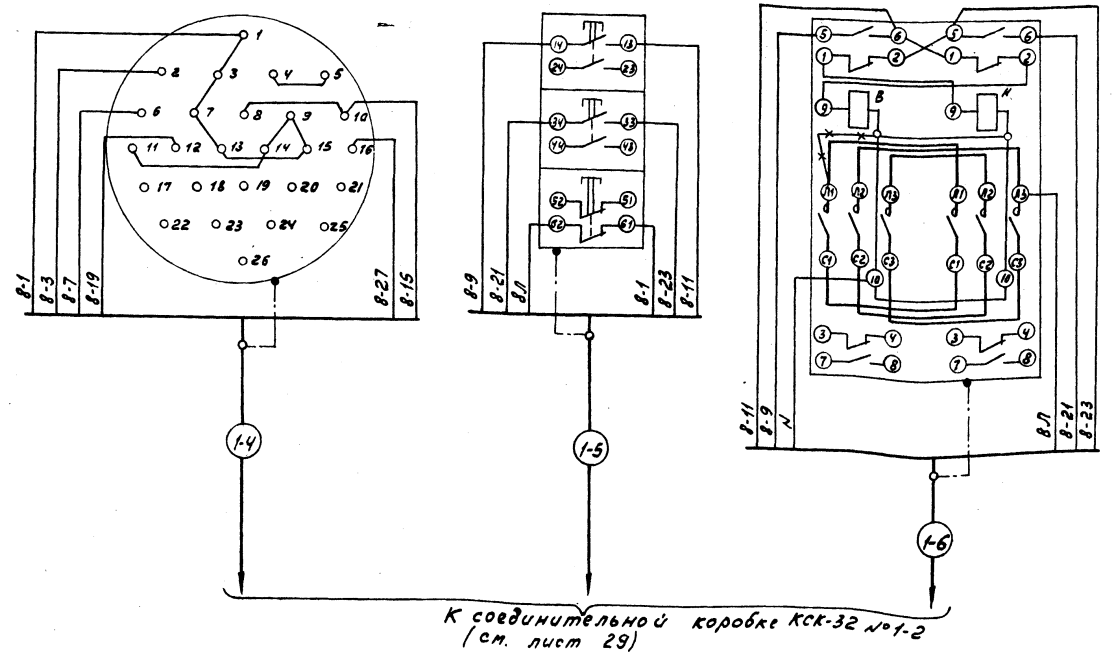 1
2 3 4 5
6 7 8 9 10
11 12 13 14 15 16
17 18 19 20 21
22 23 24 25
26
8-1 8-3 8-7 8-19 8-27 8-15
1-4
14 13
24 23
34 33
44 43
52 51
62 61
8-9 8-21 8Л 8-1 8-23 8-11
1-5
5 6 5 6
1 2 1 2
9 В 9 Н
Л1 Л2 Л3 Л1 Л2 Л3
С1 С2 С3 С1 С2 С3
10 10
3 4 3 4
7 8 7 8
8-11 8-9 N 8Л 8-21 8-23
1-6
К соединительной коробке КСК-32 №1-2
(см. лист 29)